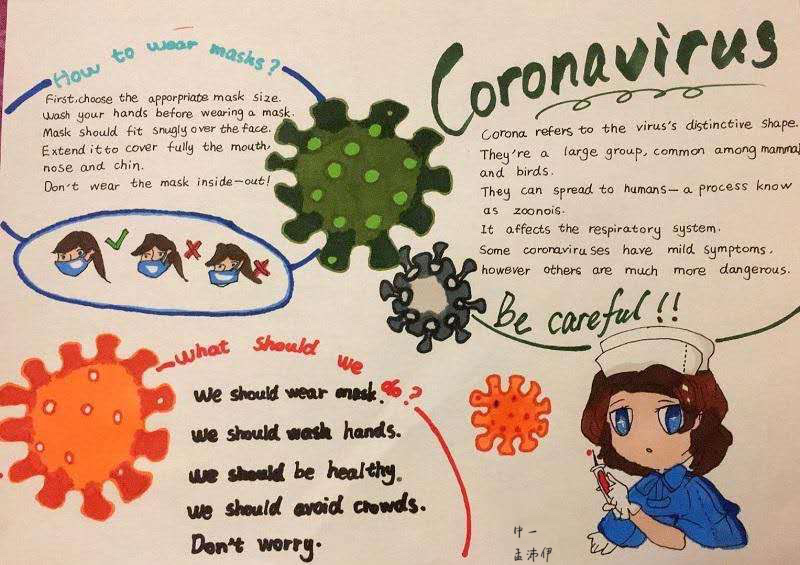 How to wear masks?
First, choose the apporpriate mask size.
Wash your hands before wearing a mask.
Mask should fit snugly over the face.
Extend it to cover fully the mouth,
nose and chin.
Don't wear the mask inside-out!
Coronavirus
Corona refers to the virus's distinctive shape.
They're a large group, common among mammal
and birds.
They can spread to humans— a process know
as zoonois.
It affects the respiratory system.
Some coronaviruses have mild symptoms,
however others are much more dangerous.
Be careful!!
What should we do?
We should wear mask.
We should wash hands.
We should be healthy.
We should avoid crowds.
Don't worry.
中一
孟沛伊